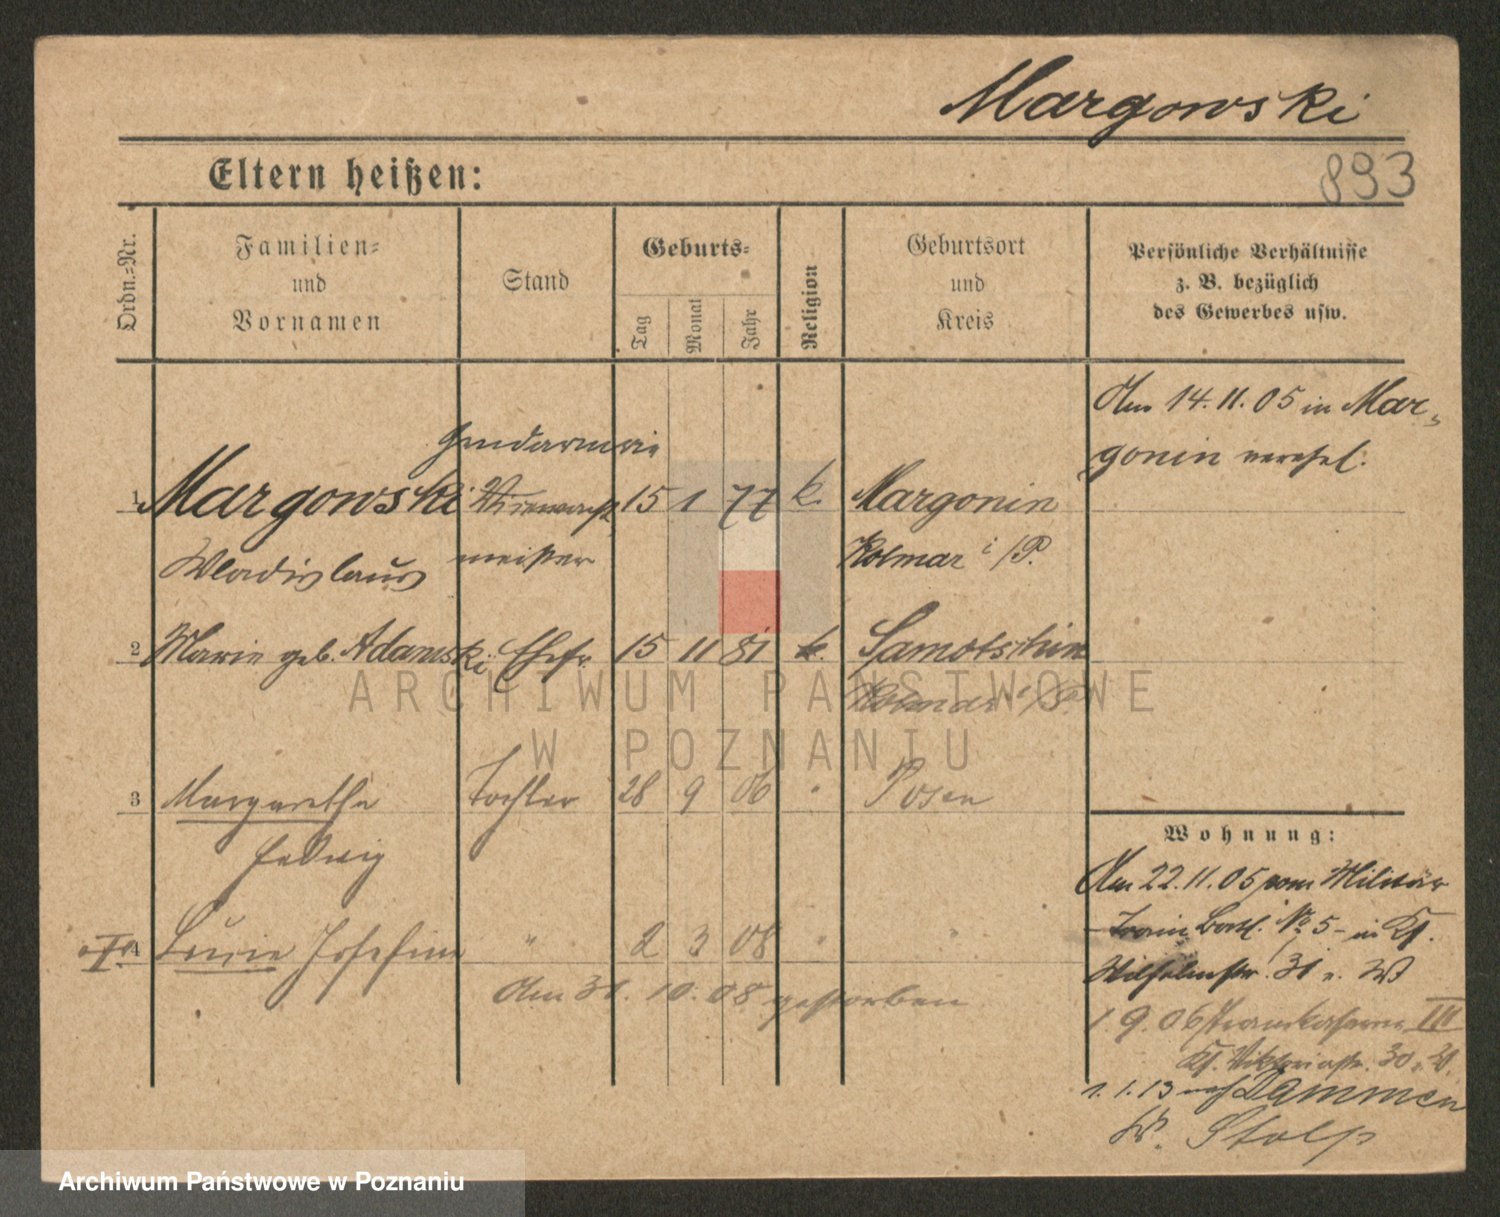 Margowski
893
Eltern heißen:
Ordn.-Nr.
Familien-
und
Vornamen
Stand
Geburts-
Tag
Monat
Jahr
Religion
Geburtsort
und
Kreis
Persönliche Verhältnisse
z. B. bezüglich
des Gewerbes usw.
Am 14. 11. 05 in Mar-
gonin verehel.
Gendarmerie
1 Margowski 15 1 77 k. Margonin
Wladislaus meister Kolmar i/P.
2 Marie geb. Adamski Ehefr. 15 11 81 k. Samotschin
Kolmar i/P.
3 Margarethe Tochter 28 9 06 " Posen
Hedwig
4 Luzie Josefine " 2 3 08 " "
Am 31. 10. 08 gestorben
Wohnung:
Am 22. 11. 05 vom Militär
Train Batl. No 5 - in Kf.
Wilhelmstr. 31 v. W
1 9. 06 Trainkaserne III
Kf. Viktoriastr. 30. W.
1. 1. 13 nach Dammen
Kr. Stolp
ARCHIWUM PAŃSTWOWE
W POZNANIU
Archiwum Państwowe w Poznaniu